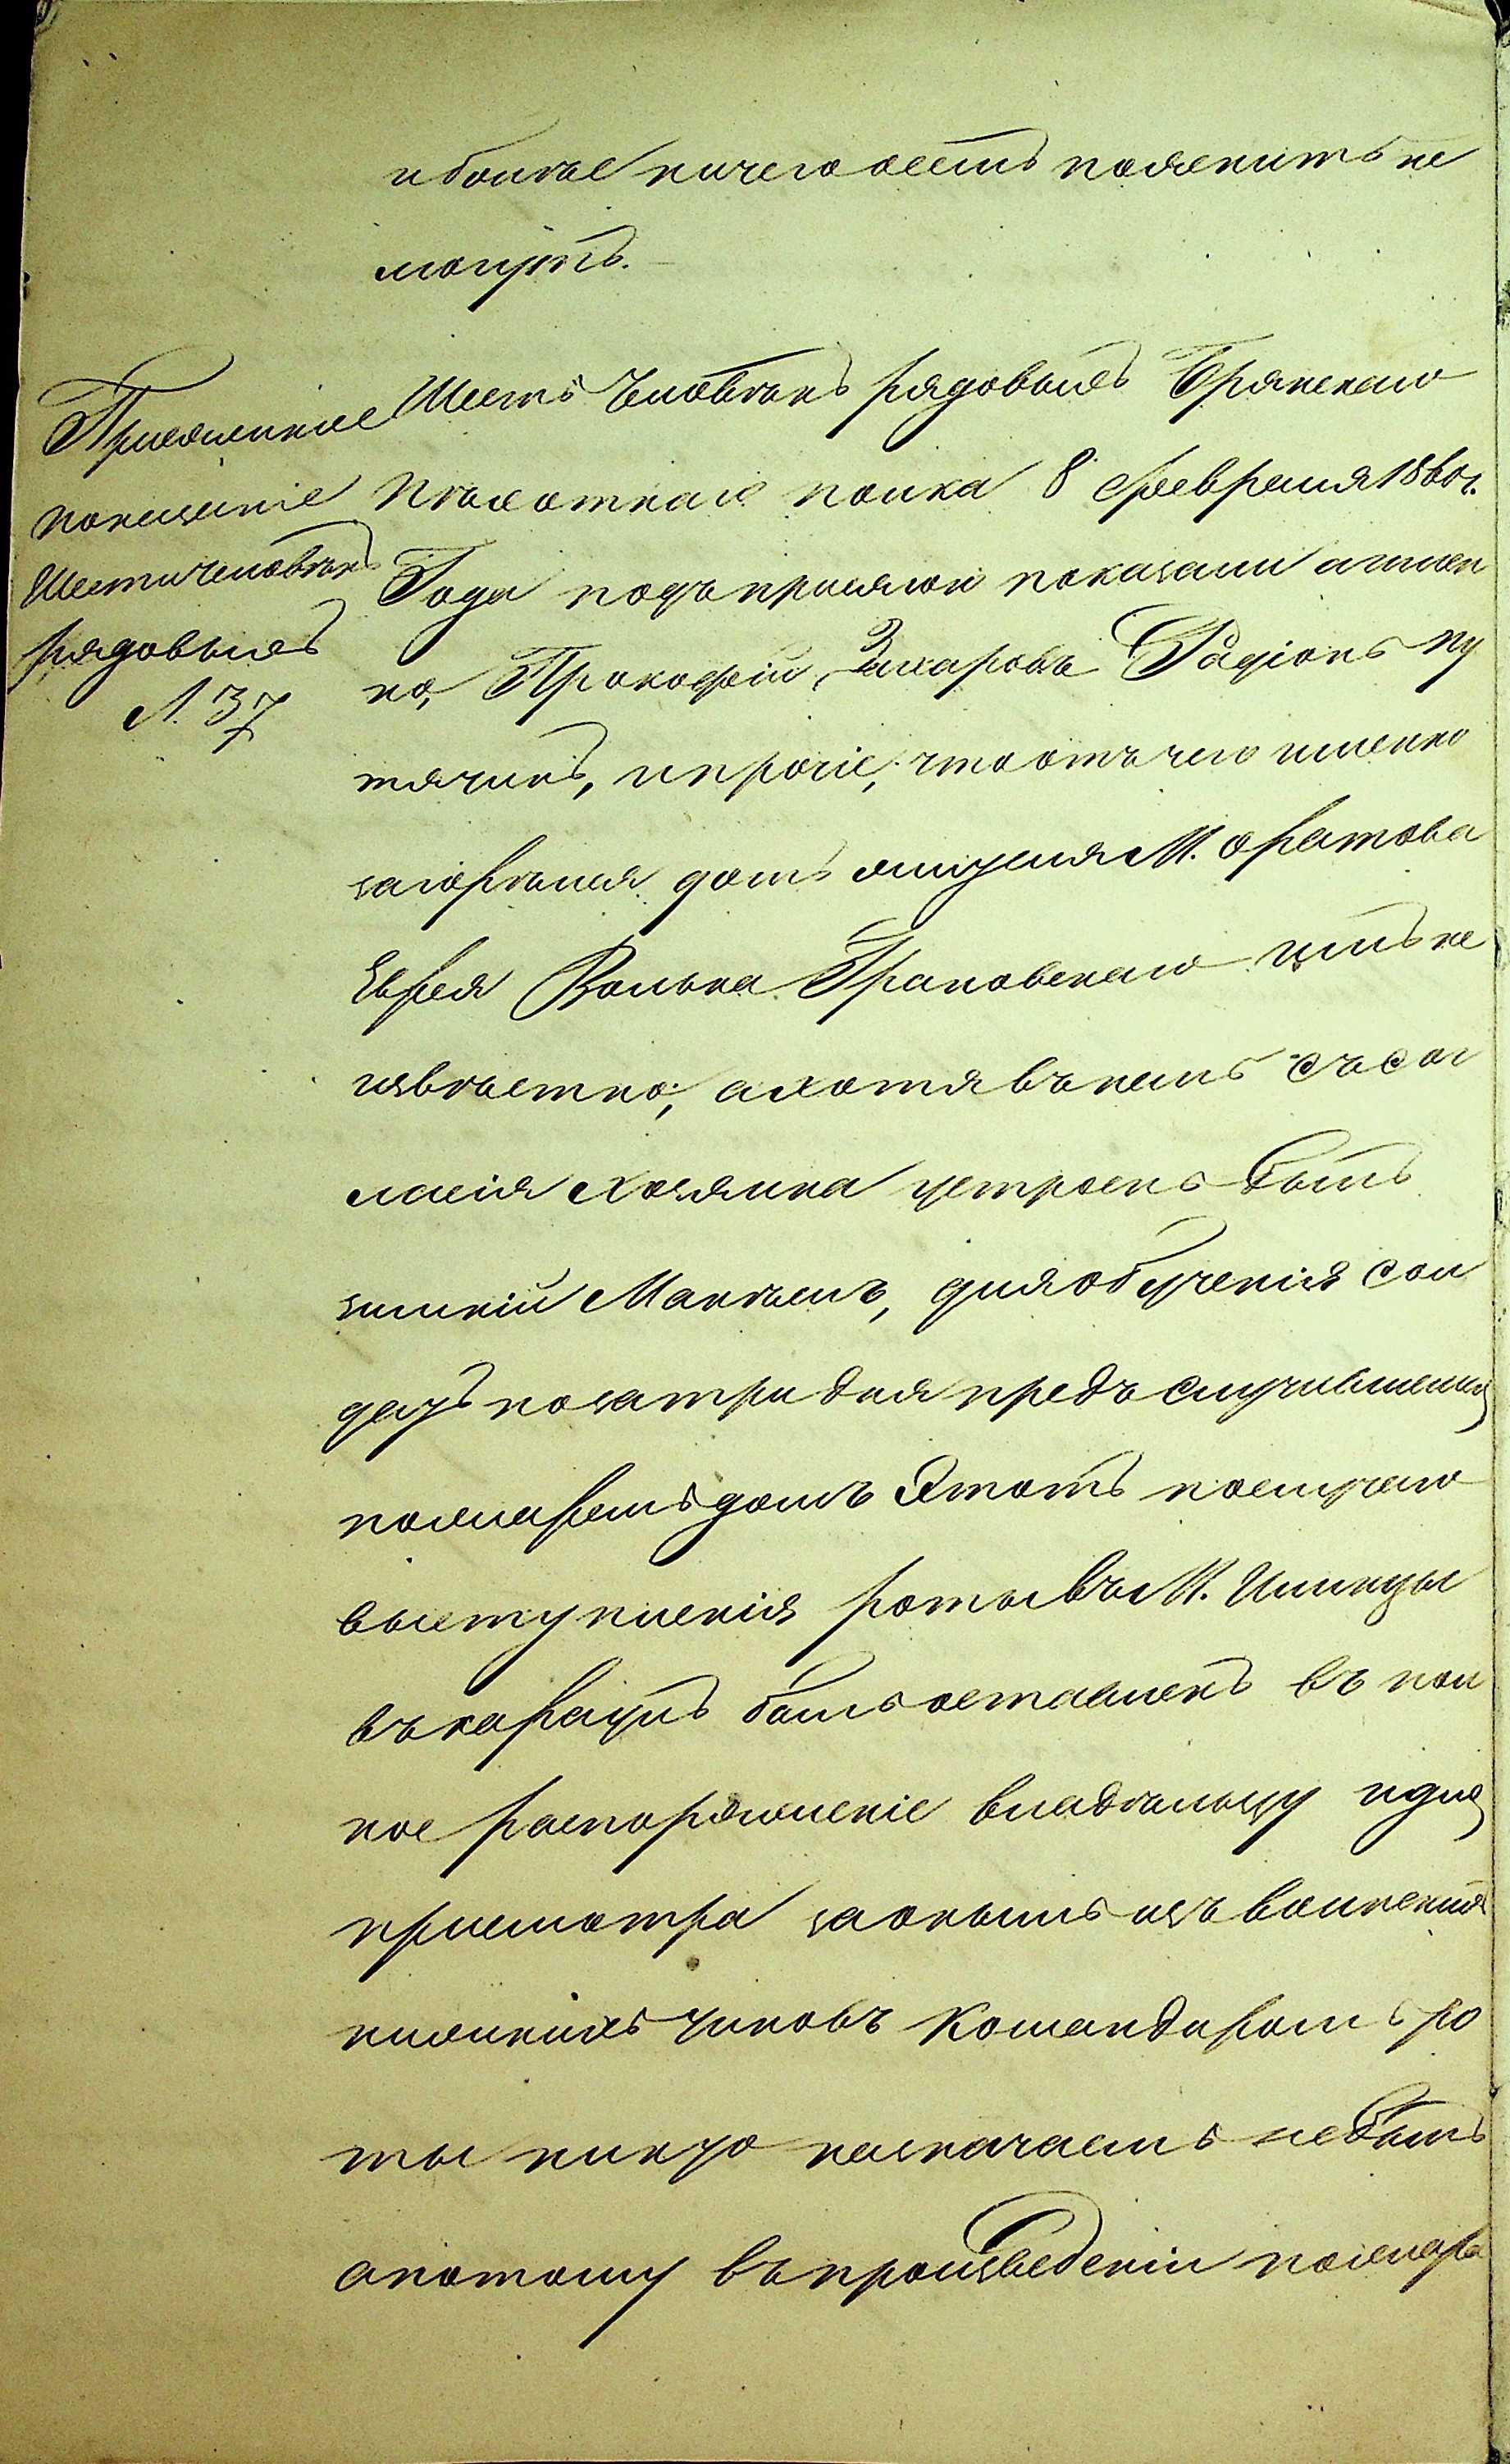 и болѣе ничего объ пояснить не
могутъ.
Присяжное
показаніе
Шести человѣкъ
рядовыхъ
Л. 37
Шесть человѣкъ рядовыхъ Брянскаго
пѣхотнаго полка 8 февраля 1860 г.
Года подъ присягою показали а имен
но, Прокофій Захаровъ Радіонъ Пу
тячикъ, и прочіе, что отъ чего именно
загорѣлся домъ жителя М. Оратова
Еврея Волька Грановскаго имъ не
извѣстно; а хотя въ немъ съ сог
ласія хозяина устроенъ былъ
зимній Манежъ, для обученія сол
датъ но за три дня предъ случившимся
пожаромъ домъ Этотъ по случаю
выступленія роты въ М. Илинцы
въ караулъ былъ оставленъ въ пол
ное распоряженіе владѣльцу и для
присмотра за онымъ изъ воинскихъ
нижнихъ чиновъ Командиромъ ро
ты никто назначаемъ не былъ
а потому въ произведеніи пожара